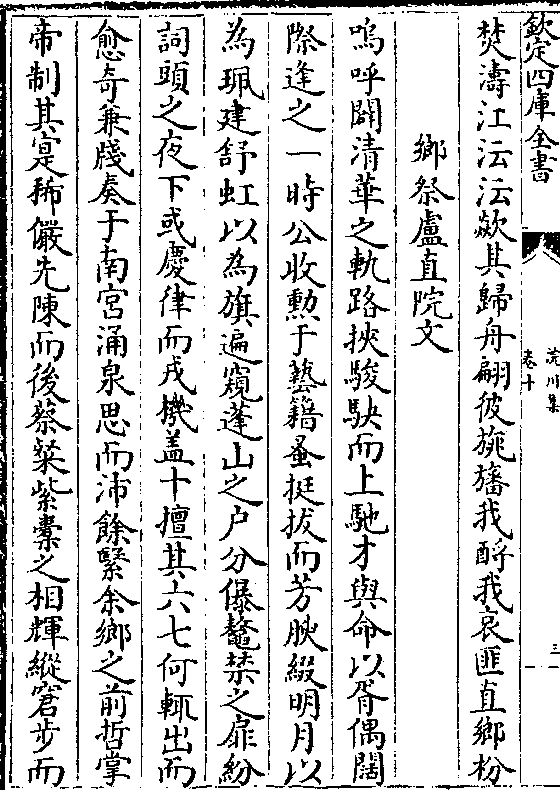 欽定四庫全書
卷十
三
焚濤江沄沄歘其歸舟翩彼旐旛我酹我哀匪直鄉枌
鄉祭盧直院文
嗚呼闢清華之軌路挾駿駃而上馳才與命以胥偶闊
際逢之一時公收勲于藝籍蚤挺拔而芳腴綴明月以
為珮建舒虹以為旗遍窺蓬山之户分儤鼇禁之扉紛
詞頭之夜下或慶律而戎機盖十擅其六七何輒出而
愈奇兼牋奏于南宮涌泉思而沛餘緊余鄉之前哲掌
帝制其寔稀儼先陳而後蔡粲紫橐之相輝縱窘步而